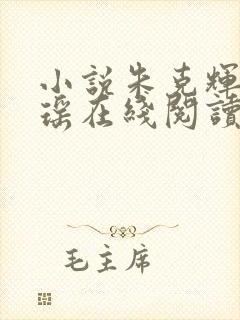 小說朱克輝
瑶在綫閱讀
毛主席